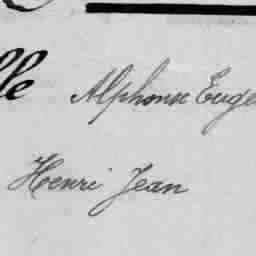 lle Alphonse Euge
Henri Jean